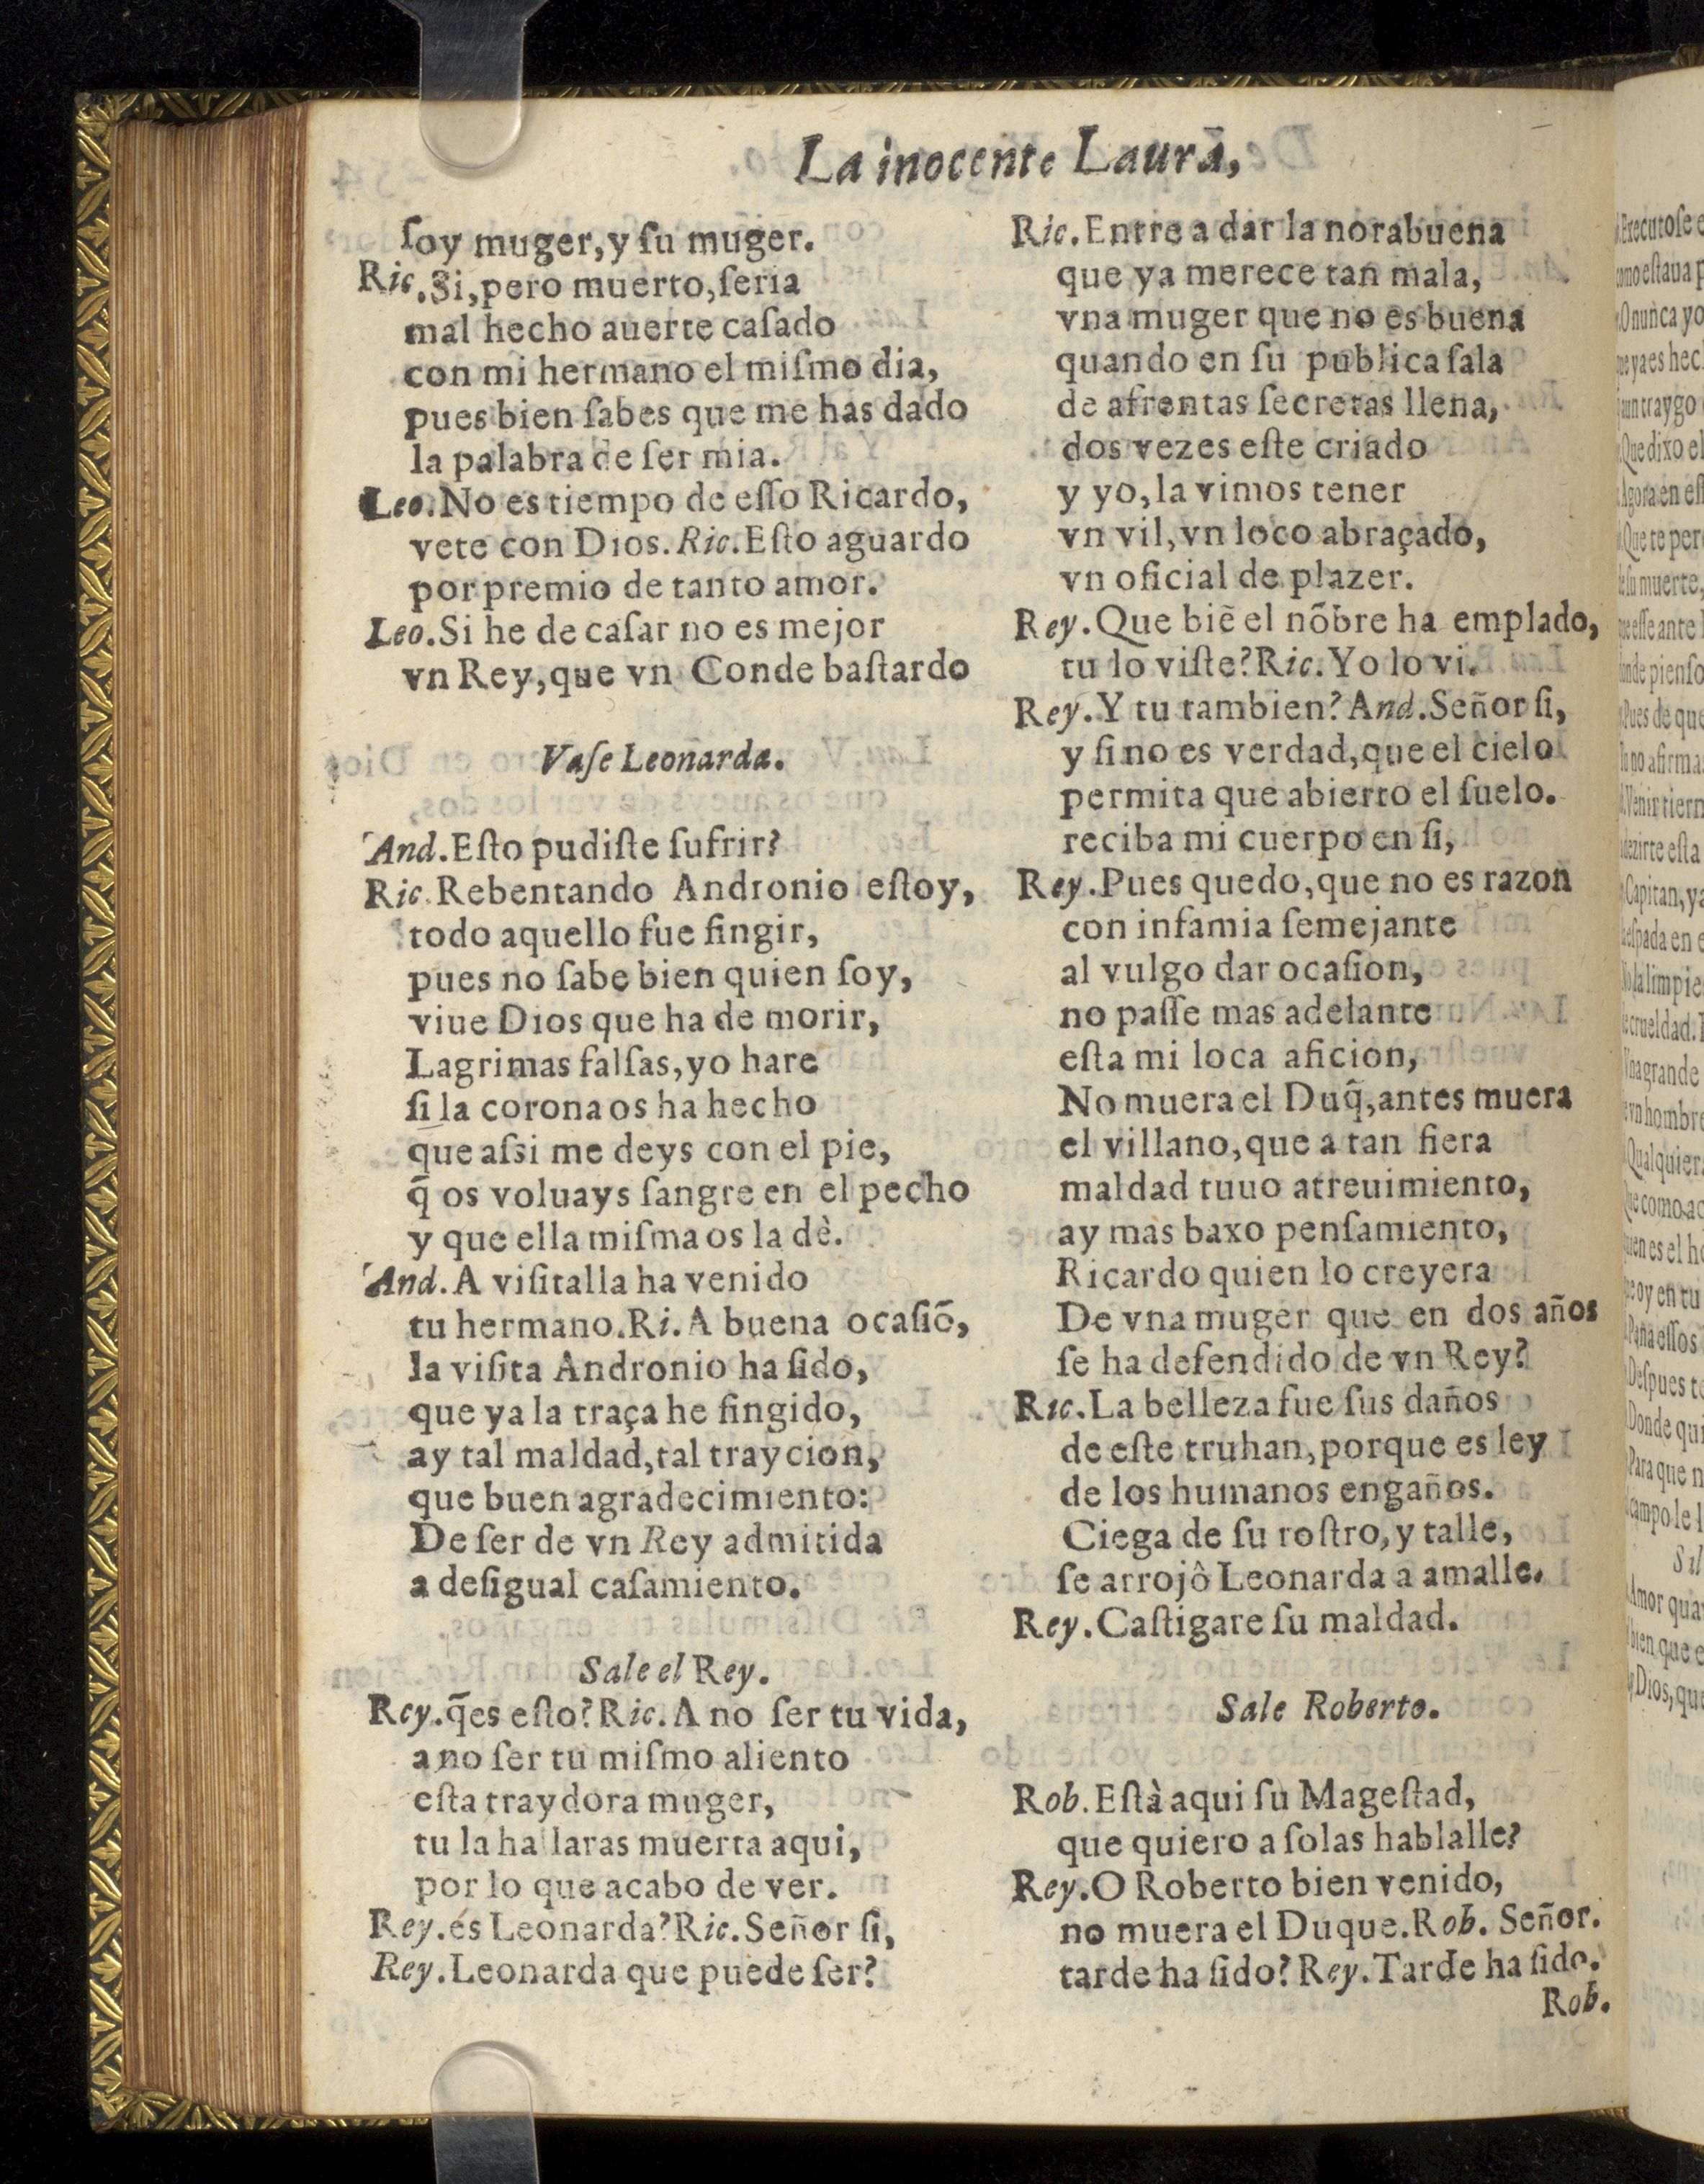 La inocente Laura,
ſoy muger, y ſu muger.
Ric. Si, pero muerto, ſeria
mal hecho auerte caſado
con mi hermano el miſmo dia,
pues bien ſabes que me has dado
la palabra de ſer mia.
Leo. No es tiempo de eſſo Ricardo,
vete con Dios. Ric. Eſto aguardo
por premio de tanto amor.
Leo. Si he de caſar no es mejor
vn Rey, que vn Conde baſtardo
Vaſe Leonarda.
And. Eſto pudiſte ſufrir?
Ric. Rebentando Andronio eſtoy,
todo aquello fue fingir,
pues no ſabe bien quien ſoy,
viue Dios que ha de morir,
Lagrimas falſas, yo hare
ſi la corona os ha hecho
que aſsi me deys con el pie,
q̃ os voluays ſangre en el pecho
y que ella miſma os la dè.
And. A viſitalla ha venido
tu hermano. Ri. A buena ocaſiõ,
la viſita Andronio ha ſido,
que ya la traça he fingido,
ay tal maldad, tal traycion,
que buen agradecimiento:
De ſer de vn Rey admitida
a deſigual caſamiento.
Sale el Rey.
Rey. q̃es eſto? Ric. A no ſer tu vida,
a no ſer tu miſmo aliento
eſta traydora muger,
tu la hallaras muerta aqui,
por lo que acabo de ver.
Rey. és Leonarda? Ric. Señor ſi,
Rey. Leonarda que puede ſer?
Ric. Entre a dar la norabuena
que ya merece tan mala,
vna muger que no es buena
quando en ſu publica ſala
de afrentas ſecretas llena,
dos vezes eſte criado
y yo, la vimos tener
vn vil, vn loco abraçado,
vn oficial de plazer.
Rey. Que biẽ el nõbre ha emplado,
tu lo viſte? Ric. Yo lo vi.
Rey. Y tu tambien? And. Señor ſi,
y ſi no es verdad, que el cielo
permita que abierto el ſuelo.
reciba mi cuerpo en ſi,
Rey. Pues quedo, que no es razon
con infamia ſemejante
al vulgo dar ocaſion,
no paſſe mas adelante
eſta mi loca aficion,
No muera el Duq̃, antes muera
el villano, que a tan fiera
maldad tuuo atreuimiento,
ay mas baxo penſamiento,
Ricardo quien lo creyera
De vna muger que en dos años
ſe ha defendido de vn Rey?
Ric. La belleza fue ſus daños
de eſte truhan, porque es ley
de los humanos engaños.
Ciega de ſu roſtro, y talle,
ſe arrojô Leonarda a amalle.
Rey. Caſtigare ſu maldad.
Sale Roberto.
Rob. Eſtà aqui ſu Mageſtad,
que quiero a ſolas hablalle?
Rey. O Roberto bien venido,
no muera el Duque. Rob. Señor.
tarde ha ſido? Rey. Tarde ha ſido.
Rob.